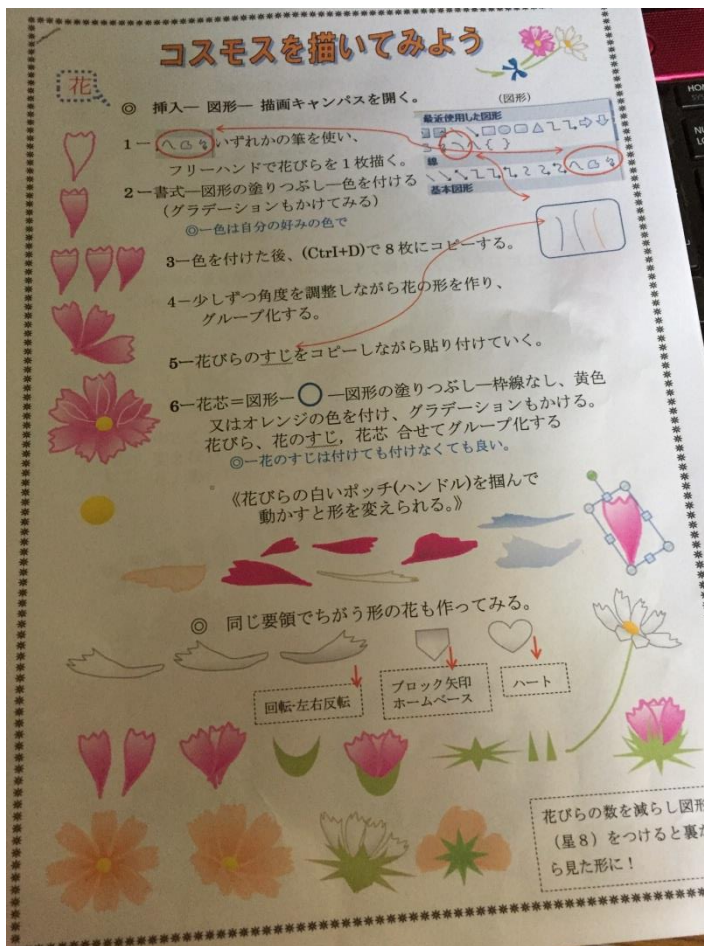 コスモスを描いてみよう
花
◎ 挿入― 図形― 描画キャンバスを開く。
(図形)
最近使用した図形
線
基本図形
1ー いずれかの筆を使い、
フリーハンドで花びらを1枚描く。
2ー書式―図形の塗りつぶし―色を付ける
(グラデーションもかけてみる)
◎ー色は自分の好みの色で
3ー色を付けた後、(Ctrl+D)で8枚にコピーする。
4ー少しずつ角度を調整しながら花の形を作り、
グループ化する。
5ー花びらのすじをコピーしながら貼り付けていく。
6ー花芯=図形ー ―図形の塗りつぶし―枠線なし、黄色
又はオレンジの色を付け、グラデーションもかける。
花びら、花のすじ, 花芯 合せてグループ化する
◎ー花のすじは付けても付けなくても良い。
《花びらの白いポッチ(ハンドル)を掴んで
動かすと形を変えられる。》
◎ 同じ要領でちがう形の花も作ってみる。
回転・左右反転
ブロック矢印
ホームベース
ハート
花びらの数を減らし図形
(星8)をつけると裏か
ら見た形に!